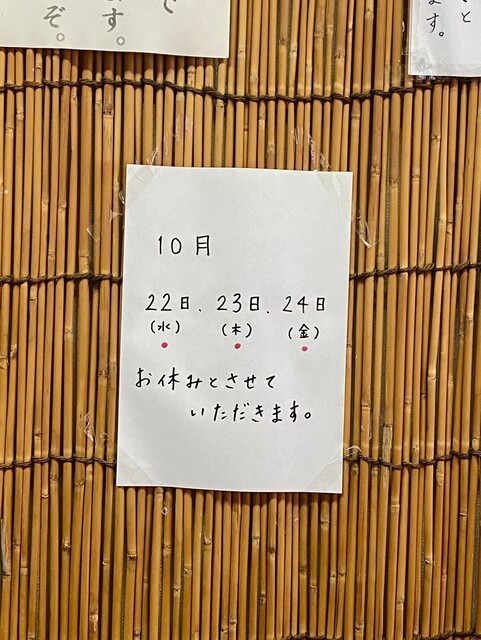 で
ます。
ぞ。
と
ます。
10月
22日、23日、24日
(水) (木) (金)
お休みとさせて
いただきます。